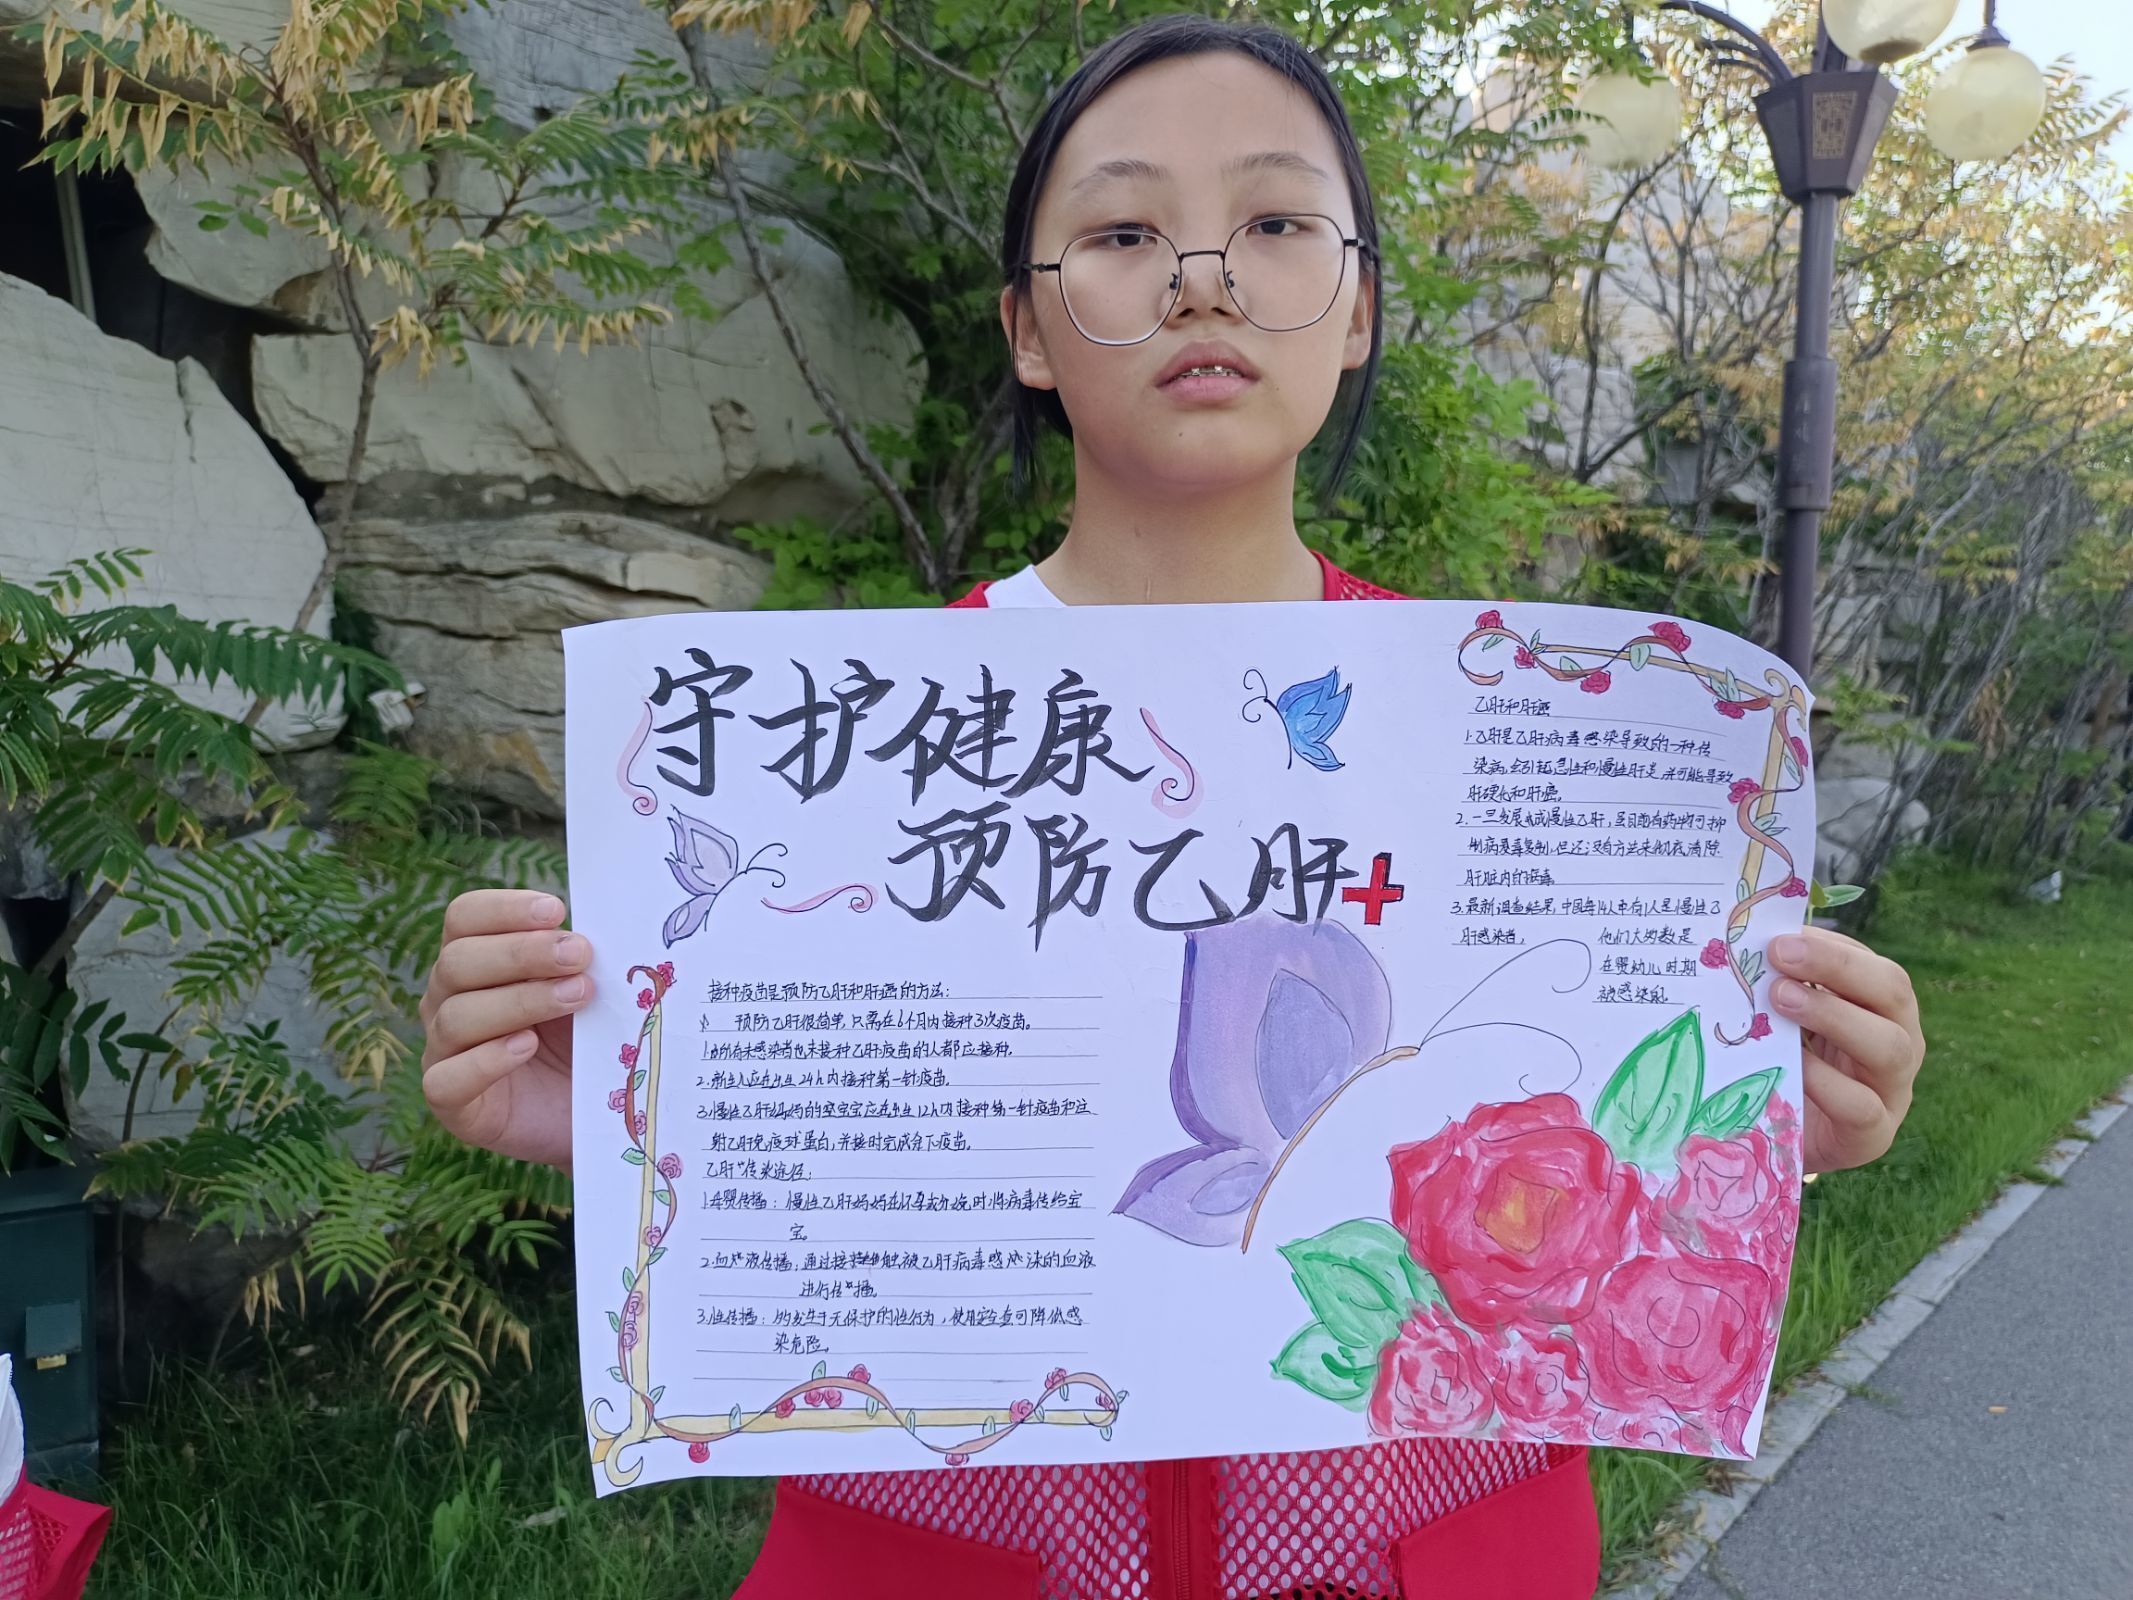 守护健康
预防乙肝
乙肝和肝癌
1.乙肝是乙肝病毒感染导致的一种传
染病,会引起急性和慢性肝炎,并可能导致
肝硬化和肝癌。
2.一旦发展成慢性乙肝,虽目前有药物可抑
制病毒复制,但还没有方法来彻底清除
肝脏内的病毒
3.最新调查结果,中国每14人中有1人是慢性乙
肝感染者, 他们大多数是
在婴幼儿时期
被感染的。
接种疫苗是预防乙肝和肝癌的方法:
预防乙肝很简单,只需在6个月内接种3次疫苗。
1.所有未感染者也未接种乙肝疫苗的人都应接种。
2.新生儿应在出生24h内接种第一针疫苗。
3.慢性乙肝妈妈的宝宝应在出生12h内接种第一针疫苗和注
射乙肝免疫球蛋白,并按时完成余下疫苗。
乙肝传染途径:
1.母婴传播:慢性乙肝妈妈在怀孕或分娩时将病毒传给宝
宝。
2.血液传播:通过接触被乙肝病毒感染的血液
进行传播。
3.性传播:多发生于无保护的性行为,使用安全套可降低感
染危险。